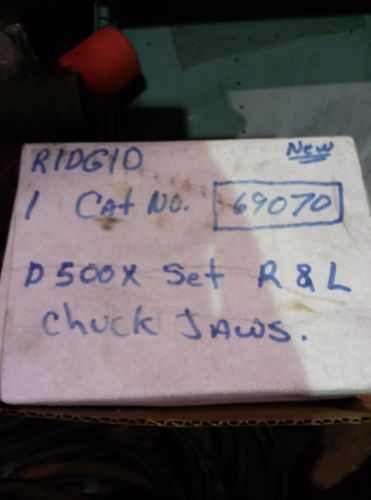 RIDGID New
1 Cat No. 69070
D500X Set R & L
Chuck JAWS.